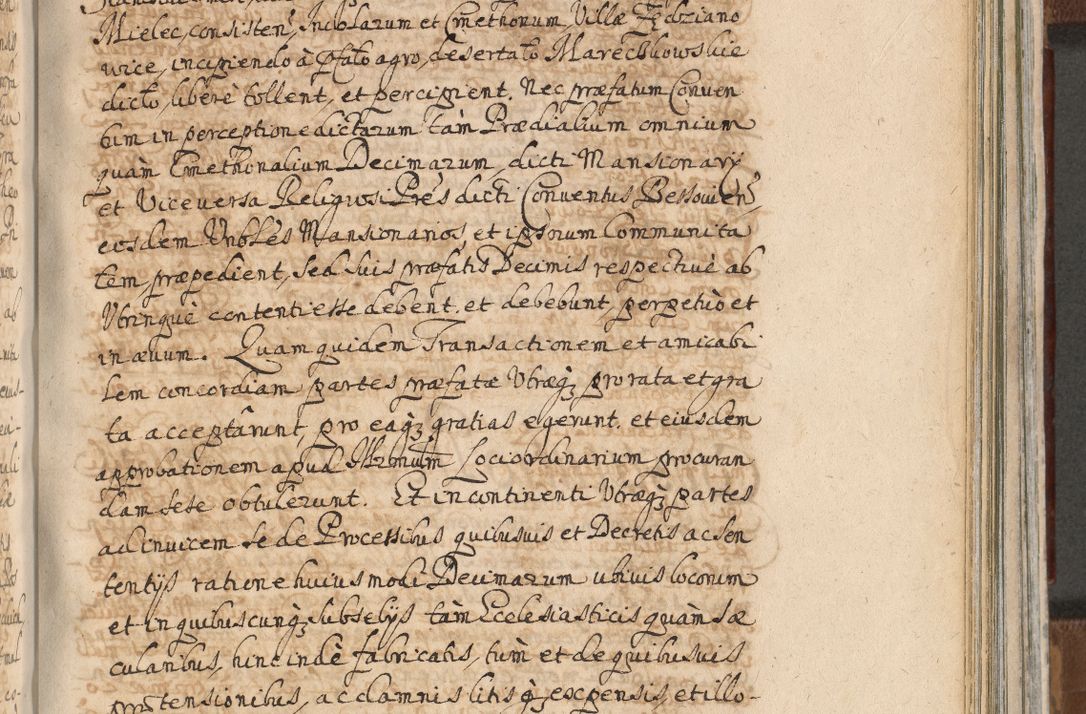 Mielec, consisten͂, Incolarum et Cmethonum Villæ Fędziano
vice, incipiendo à p͂fato agro, desertato Marechkowskie
dicto, libere tollent, et percipient. Nec præfatum Conven
tum in perceptione dictarum tam Prædialium omnium
quàm Cmethonalium Decimarum, dicti Mansionarij
et Viceversa Religiosi Pres dicti Conventus Bessovien͂,
eosdem Vnbles Mansionarios, et ipsorum Communita
tem, præpedient, sed suis præfatis Decimis respectivè ab
Vtrinquè contenti esse debent, et debebunt, perpetuò et
in ævum. Quam quidem Transactionem et amicabi
lem concordiam partes præfatæ Vtræq; pro rata et gra
ta acceptârunt, pro eaq; gratias egerunt, et eiusdem
approbationem apud Illrmum Loci ordinarium procuran
dam sese obtulerunt. Et in continenti Vtræq; partes
ad invicem se de Processibus quibusvis et Decretis ac Sen
tentijs ratione huiusmodi Decimarum ubivis locorum
et in quibuscunq; subselijs tàm Ecclesiasticis quàm sæ
cularibus, hinc indè fabricatis, tùm et de quibusvis
prætensionibus, ac damnis litisq; expensis, et illo-